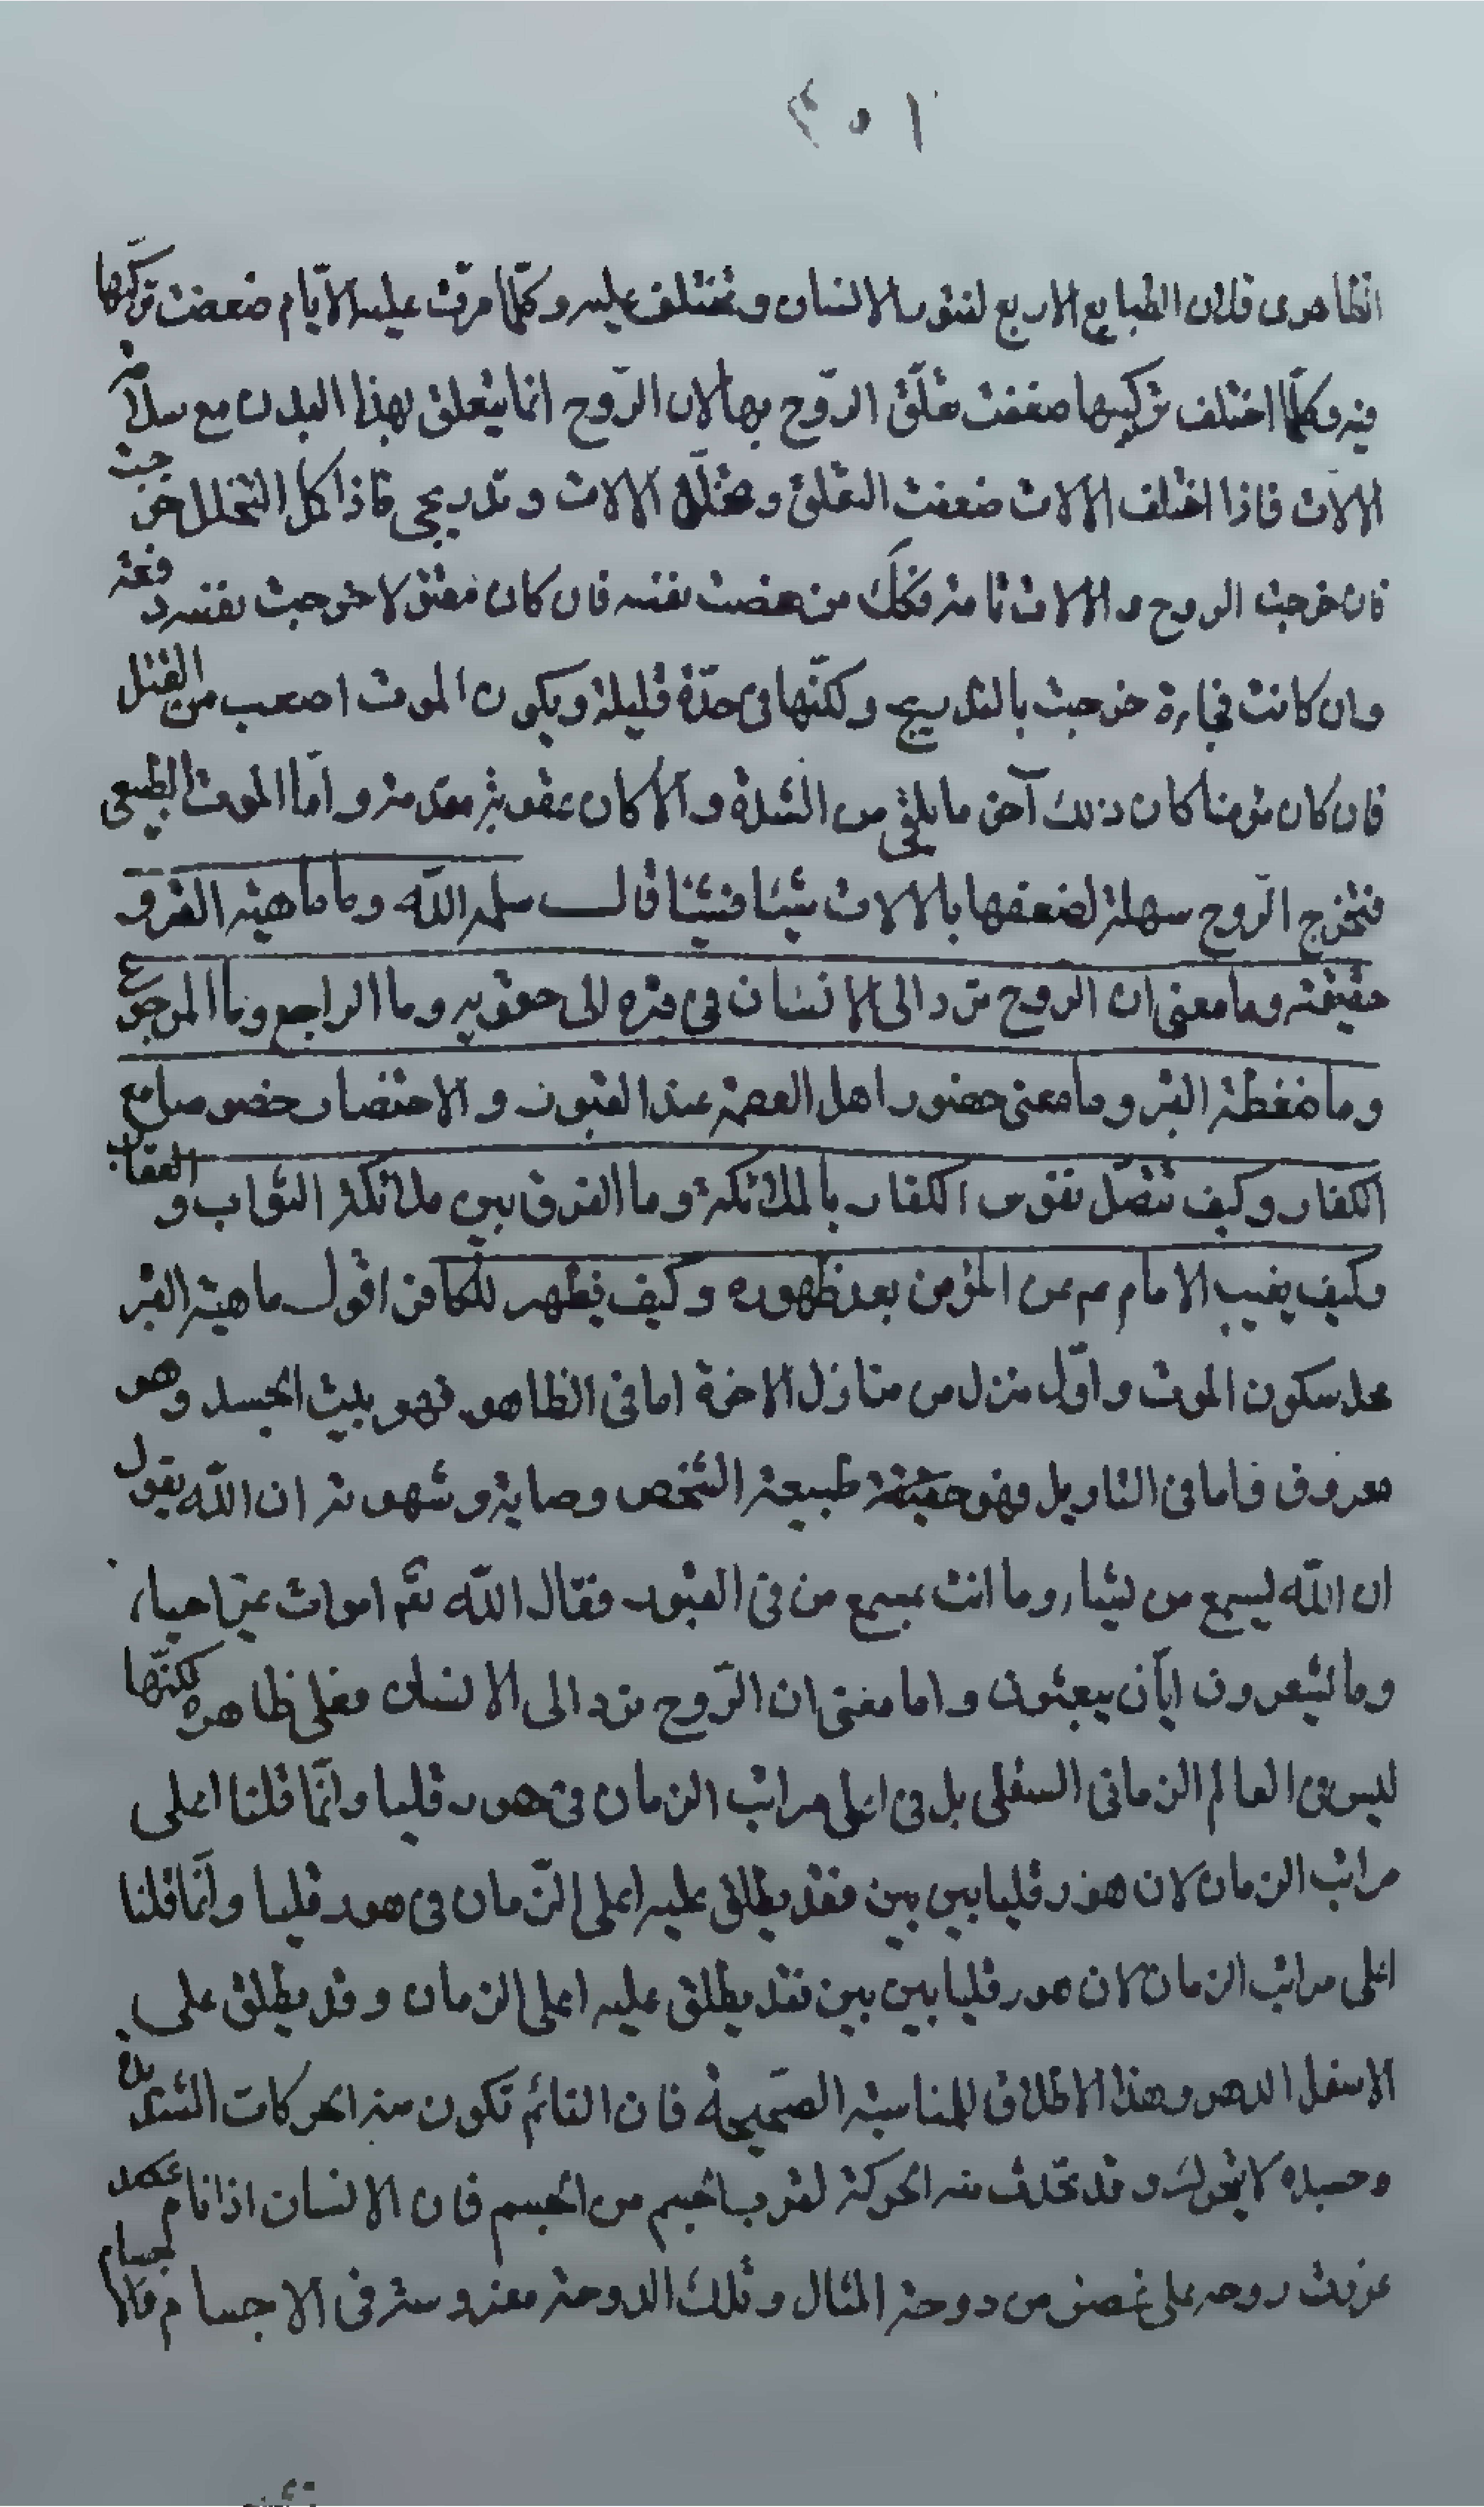 ١٥٢
الظاهری فلان الطبایع الاربع لتتوارد الانسان وتختلف علیه وکلّما مرّت علیه الایّام ضعفت ترکیبها
فیه وکلّما اختلف ترکیبها ضعفت تعلّق الرّوح بها لان الرّوح انما یتعلق بهذا البدن مع سلامة
الالات فاذا اختلف الالات ضعفت التعلق وتختلّ الالات وتدریجی فاذا کمل التخلل خرجت
فان خرجت الروح والالات تامة فذلک من غصبت نفسه فان کان مقتولا خرجت نفسه دفعة
وان کانت خرجت بالتدریج ولکنّها فی حدّة قلیلة ویکون الموت اصعب من القتل
فان کان مؤمنا کان ذلک آخر ما یلقی من الشدة والا کان عقوبة مقدمة وامّا الموت الطبیعی
فتخرج الرّوح سهلة لضعفها بالالات شیئا فشیئا قال سلمه الله وما ماهیة القبر و
حقیقته وما معنی ان الروح ترد الی الانسان فی قبره الی حقویه وما الراجع وما المرجوع
وما ضغطة القبر وما معنی حضور اهل العصمة عند القبور والاحتضار خصوصا مع
الکفار وکیف تتصل نفوس الکفار بالملائکة وما الفرق بین ملائکة الثواب والعقاب
وکیف یغیب الامام عم عن المؤمن بعد ظهوره وکیف یظهر للکافر اقول ماهیة القبر
محل سکون الموت واوّل منزل من منازل الاخرة اما فی الظاهر فهو بیت الجسد وهو
معروف فاما فی التاویل فهو حقیقة طبیعة الشخص وحیاته وشهوته ان الله یقول
ان الله یسمع من یشاء وما انت بمسمع من فی القبور فقال الله تعم اموات غیر احیاء
وما یشعرون ایّان یبعثون واما معنی ان الرّوح ترد الی الانسان فعلی ظاهره لکنّها
لیس فی العالم الزمانی السفلی بل فی اعلی مراتب الزمان فی هورقلیا وانّما قلنا اعلی
مراتب الزمان لان هورقلیا بین بین فقد یطلق علیه اعلی الزّمان فی هورقلیا وانّما قلنا
اعلی مراتب الزمان لان هورقلیا بین بین فقد یطلق علیه اعلی الزمان وقد یطلق علی
الاسفل الدهر وهذا الاطلاق للمناسبة الصحیحة فان النائم تکون منه الحرکات الشدیدة
وجسده لا یتحرک وقد تحدث منه الحرکة لقرب الجسم من الجسم فان الانسان اذا نام صعد
عزبت روحه علی غصن من دوحة المثال وتلک الدوحة مغروسة فی الاجسام فالاجسام